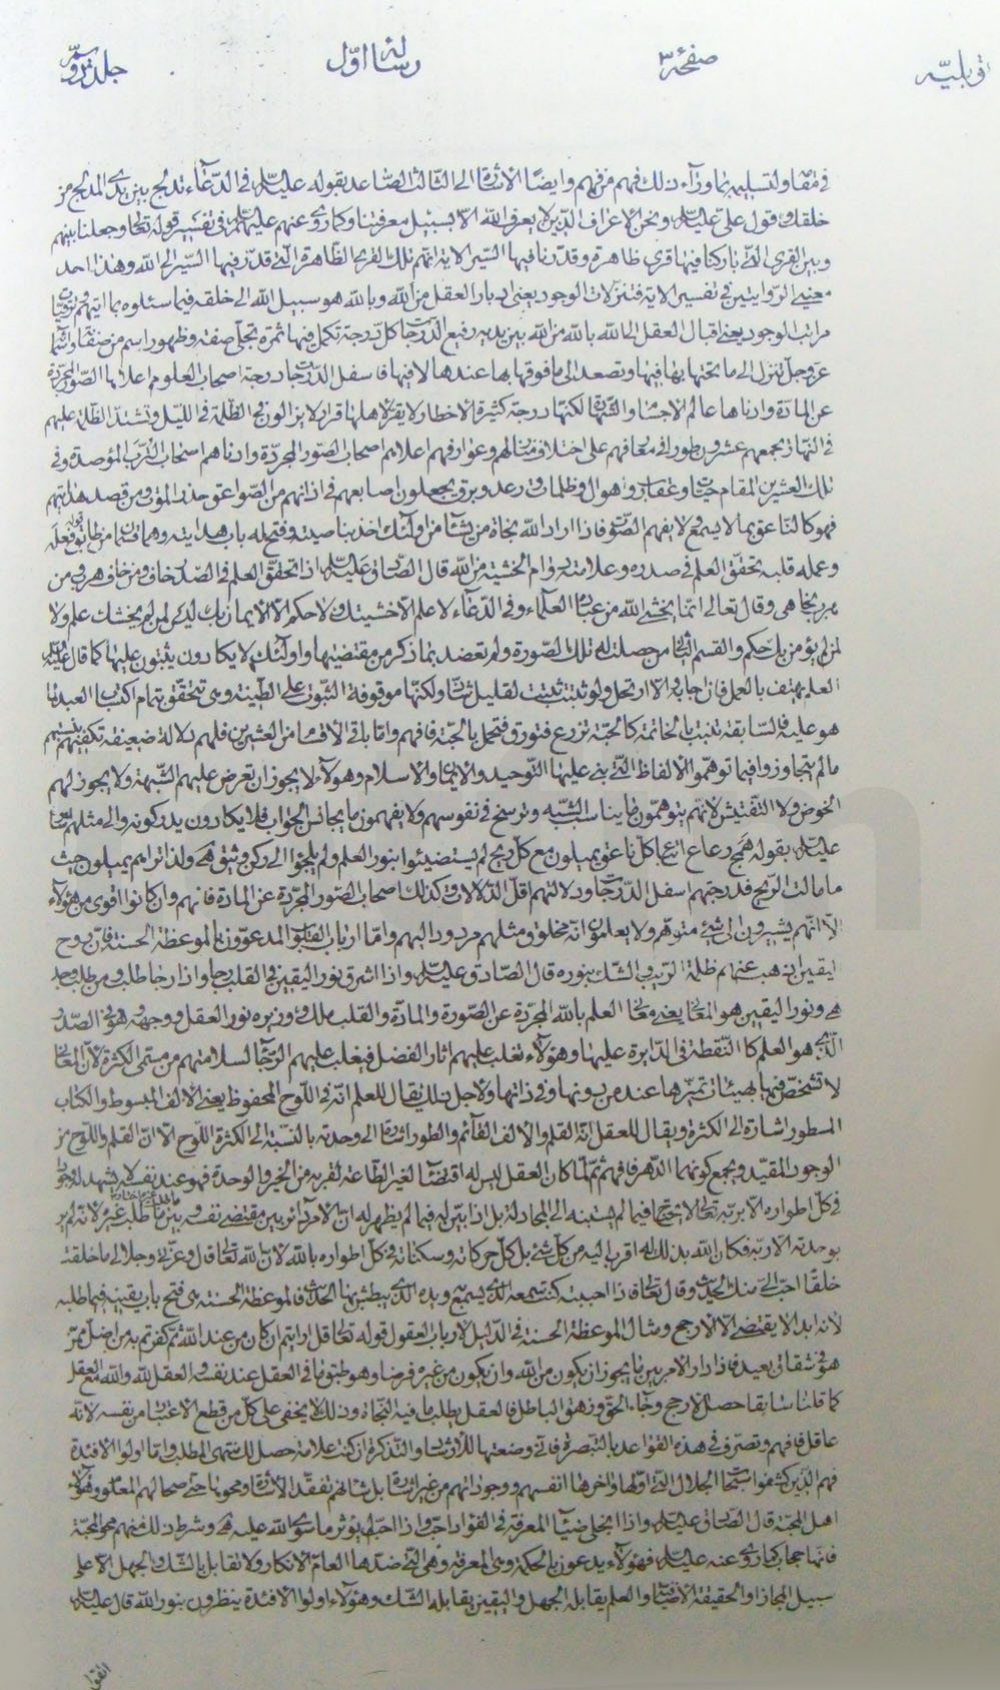 توبلية صفحه ۳ رسالة اول جلد
خلقك وقول علي عليه السلام ونحن الاعراف الذين لا يعرف الله الا بسبيل معرفتنا وكما روي عنهم عليهم السلم في تفسير قوله تعالى وجعلنا بينهم
وبين القرى التي باركنا فيها قرى ظاهرة وقدرنا فيها السير الاية انهم تلك القرى الظاهرة التي قدر فيها السير الى الله وهذا احد
الروايتين في تفسير الاية فتنزلات الوجود يعني ادبار العقل من الله وبالله هو سبيل الله الى خلقه فيما سئلوه بما اتيهم
مراتب الوجود يعني اقبال العقل الى الله بالله من الله بين يديه رفيع الدرجات كل درجة تكمل فيها ثمرة تجلى صفته وظهور اسم من
عز وجل تنزل الى ما تحتها بها فيها وتصعد الى ما فوقها بها عندها لا فيها فاسفل الدرجات درجة اصحاب العلوم اعلاها الصور المجردة
عن المادة وادناها عالم الاجسام لكنها درجة كثيرة الاخطار لا يقر لاهلها قرار لا يزالون في الظلمة في الليل وتشتد الظلمة عليهم
في النهار يجمعهم عشرون طورا في معارفهم على اختلاف اعلاهم اصحاب الصور المجردة وادناهم اصحاب
تلك العشرين المقام حيات وعقارب واهوال وظلمات ورعد وبرق يجعلون اصابعهم في اذانهم من الصواعق حذر الموت ومن قصد هدايتهم
فهو كالناعق بما لا يسمع لا يفهم الصوت فاذا اراد الله نجاة من يشاء من اولئك اخذ بناصيته وفتح له باب هدايته وهما
وعمله قلبه تحقق العلم في صدره وعلامته دوام الخشية من الله قال الصادق عليه السلام اذا تحقق العلم في الصدر خاف ومن خاف هرب ومن
هرب نجا هي وقال تعالى انما يخشى الله من عباده العلماء وفي الدعاء لا علم الا خشيتك ولا حكم الا الايمان بك ليس لمن لم يخشك علم ولا
لمن لم يؤمن بك حكم والقسم الثاني من حصلت له تلك الصورة ولم تعضد بما ذكر من مقتضيها واولئك لا يكادون يثبتون عليها كما قال عليه السلام
العلم يهتف بالعمل فان اجابه والا ارتحل ولو ثبتت ثبتت لقليل ولكنها موقوفة الثبوت على الطينة وهي تتحقق بتمام اكتساب العبد لما
هو عليه فالسابقة تنبت الخاتمة كالحبة تزرع فتورق فتحمل بالحبة فافهم واما باقي الاقسام من العشرين فلهم دلالة ضعيفة تكفيهم
ما لم يتجاوزوا فيما توهموا الالفاظ التي بني عليها التوحيد والايمان والاسلام وهؤلاء لا يجوز ان تعرض عليهم الشبهة ولا يجوز لهم
الخوض ولا التفتيش لانهم يتوهمون ما يناسب الشبه وترسخ في نفوسهم ولا يفهمون ما يجانس الجواب فلا يكادون يدركونه والى مثلهم
عليه السلام بقوله همج رعاع اتباع كل ناعق يميلون مع كل ريح لم يستضيئوا بنور العلم ولم يلجؤا الى ركن وثيق هي ولذا تراهم يميلون حيث
ما مالت الريح فدرجتهم اسفل الدرجات ودلالتهم اقل الدلالات وكذلك اصحاب الصور المجردة عن المادة فانهم وان كانوا اقوى من هؤلاء
الا انهم يشيرون الى شيء متوهم ولا يعلمون انه مخلوق ومثلهم مردود اليهم واما ارباب القلوب المدعوون بالموعظة الحسنة فان روح
اليقين اذهب عنهم ظلمة الريب والشك بنوره قال الصادق عليه السلام واذا اشرق نور اليقين في القلب رجا واذا رجا طلب ومن طلب وجد
هي ونور اليقين هو المعاني يعني معاني العلم بالله المجردة عن الصورة والمادة والقلب ملك وزيره نور العقل ووجهه هو في الصدر
الذي هو العلم كالنقطة في الدايرة عليها وهؤلاء تغلب عليهم اثار الفضل فيغلب عليهم الرجاء لسلامتهم من مسمى الكثرة لان المعاني
لا تشخص فيها بهيئات تميزها عنده من دونها وفي ذاتها ولاجل ذلك يقال للعلم انه في اللوح المحفوظ يعني الالف المبسوط والكتاب
المسطور اشارة الى الكثرة ويقال للعقل انه القلم والالف القائم والطور اشارة الى وحدته بالنسبة الى الكثرة اللوح الا ان القلم واللوح من
الوجود المقيد ويجمع كونهما الدهر فافهم ثم لما كان العقل ليس له اقتضاء لغير الطاعة لقربه من الخير والوحدة فهو عند نفسه لا يشهد له وجودا
في كل اطواره الا بربه تعالى
بوحدته الا ربه فكان الله بذلك له اقرب اليه من كل شيء بل كل حركاته وسكناته في كل اطواره بالله لان الله تعالى قال وعزتي وجلالي ما خلقت
خلقا احب الي منك الحديث وقال تعالى فاذا احببته كنت سمعه الذي يسمع به ويده التي يبطش بها الحديث فالموعظة الحسنة هي فتح باب يقينه فيما طلبه
لانه ابدا لا يقتضي الا الارجح ومثال الموعظة الحسنة في الدليل لارباب العقول قوله تعالى قل ارايتم ان كان من عند الله ثم كفرتم به من اضل ممن
هو في شقاق بعيد فاذا دار الامر بين ما يجوز ان يكون من الله وان يكون من غيره فرضا وهو طبق ما في العقل عند نفسه العقل لله والله مع العقل
كما قلنا سابقا حصل الارجح وجاء الحق وزهق الباطل فالعقل يطلب ما فيه النجاة وذلك لا يخفى على كل من قطع الاعتبار من نفسه لانه
عاقل فافهم وتصرف في هذه القواعد بالتبصرة فاني وضعتها للارشاد والتذكرة ان كنت علامة حصل لك منتهى المطلب واما اولوا الافئدة
فهم الذين كشفوا سبحات الجلال التي اولها واخرها انفسهم ووجوداتهم من غير اشارة بل شانهم تفقد الاشارة ومحو حتى صحا لهم المعلوم وهؤلاء
اهل المحبة قال الصادق عليه السلام واذا انجلى ضياء المعرفة في الفؤاد احب واذا احب لم يؤثر ما سوى الله عليه هي وشرط ذلك منهم محو المحبة
فانها حجاب كما روي عنه عليه السلام فهؤلاء يدعون بالحكمة وهي المعرفة وهي التي ضدها العام الانكار ولا تقابل بالشك والجهل الا على
سبيل المجاز او الحقيقة الاضافية والعلم يقابله الجهل واليقين يقابله الشك وهؤلاء اولوا الافئدة ينظرون بنور الله قال عليه السلام
اتقوا